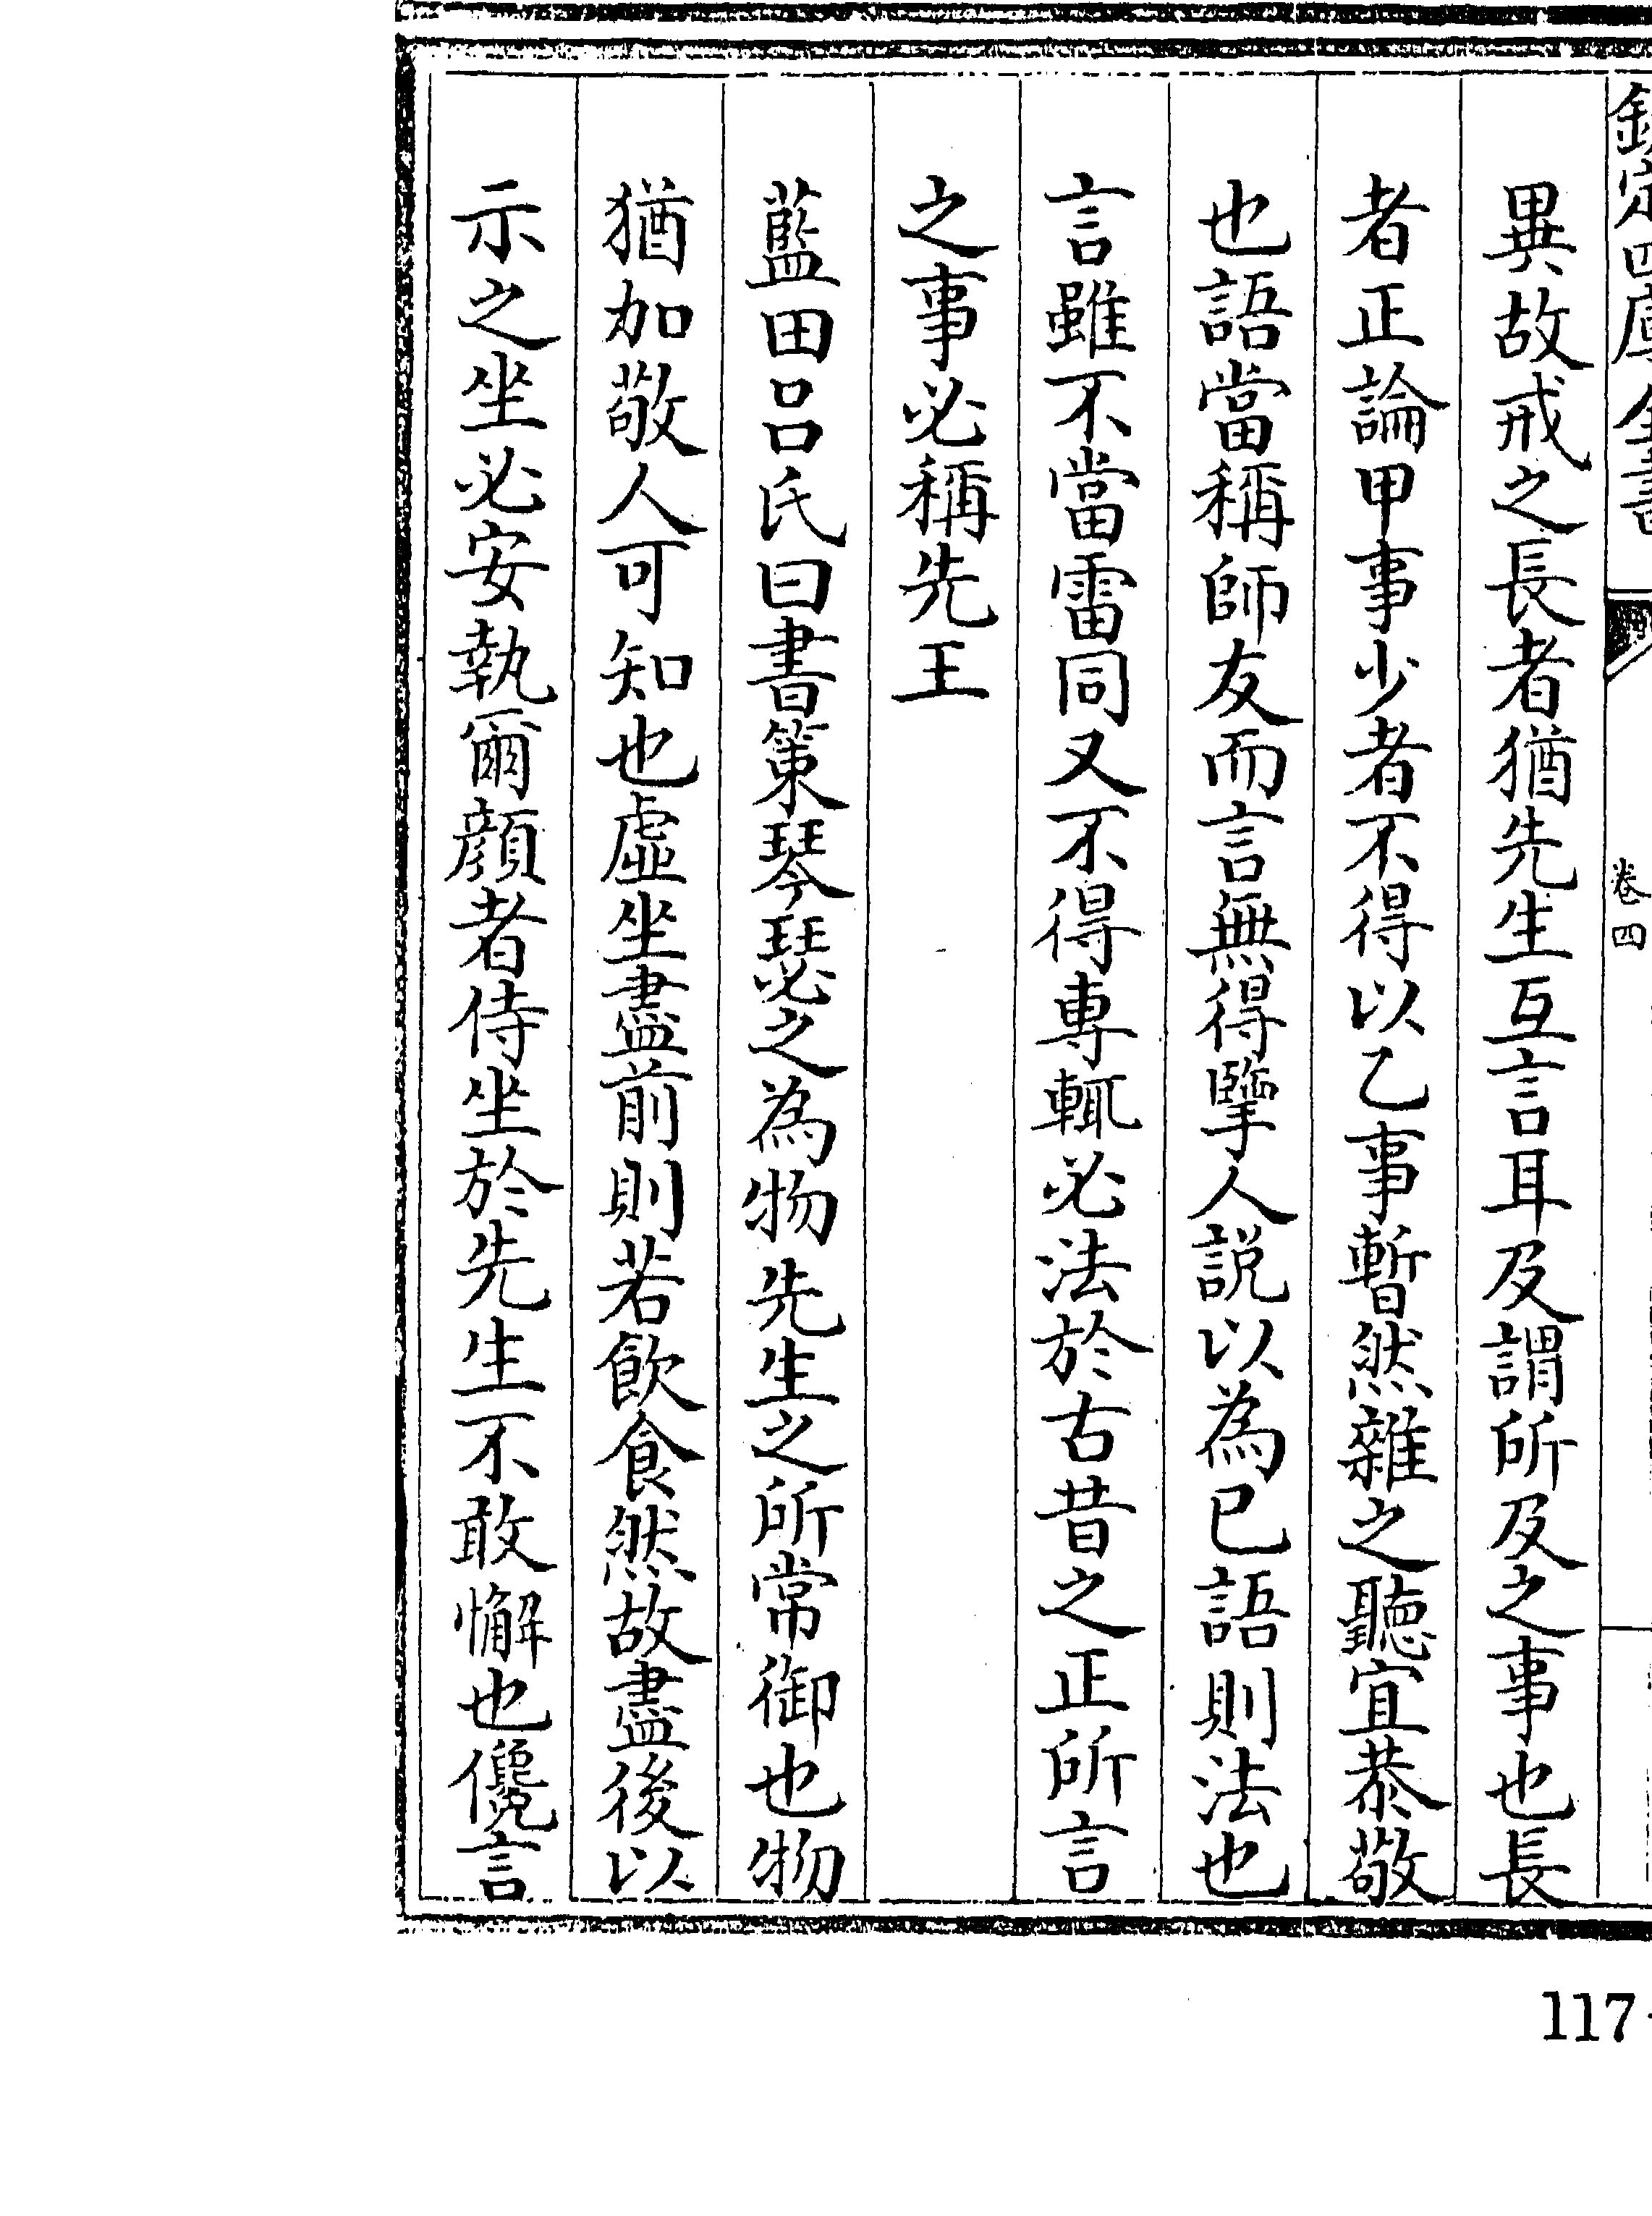 欽定四庫全書
卷四
異故戒之長者猶先生互言耳及謂所及之事也長
者正論甲事少者不得以乙事暫然雜之聽宜恭敬
也語當稱師友而言無得擥人説以為已語則法也
言雖不當雷同又不得專輒必法於古昔之正所言
之事必稱先王
藍田呂氏曰書策琴瑟之為物先生之所常御也物
猶加敬人可知也虛坐盡前則若飲食然故盡後以
示之坐必安執爾顏者侍坐於先生不敢懈也儳言
117